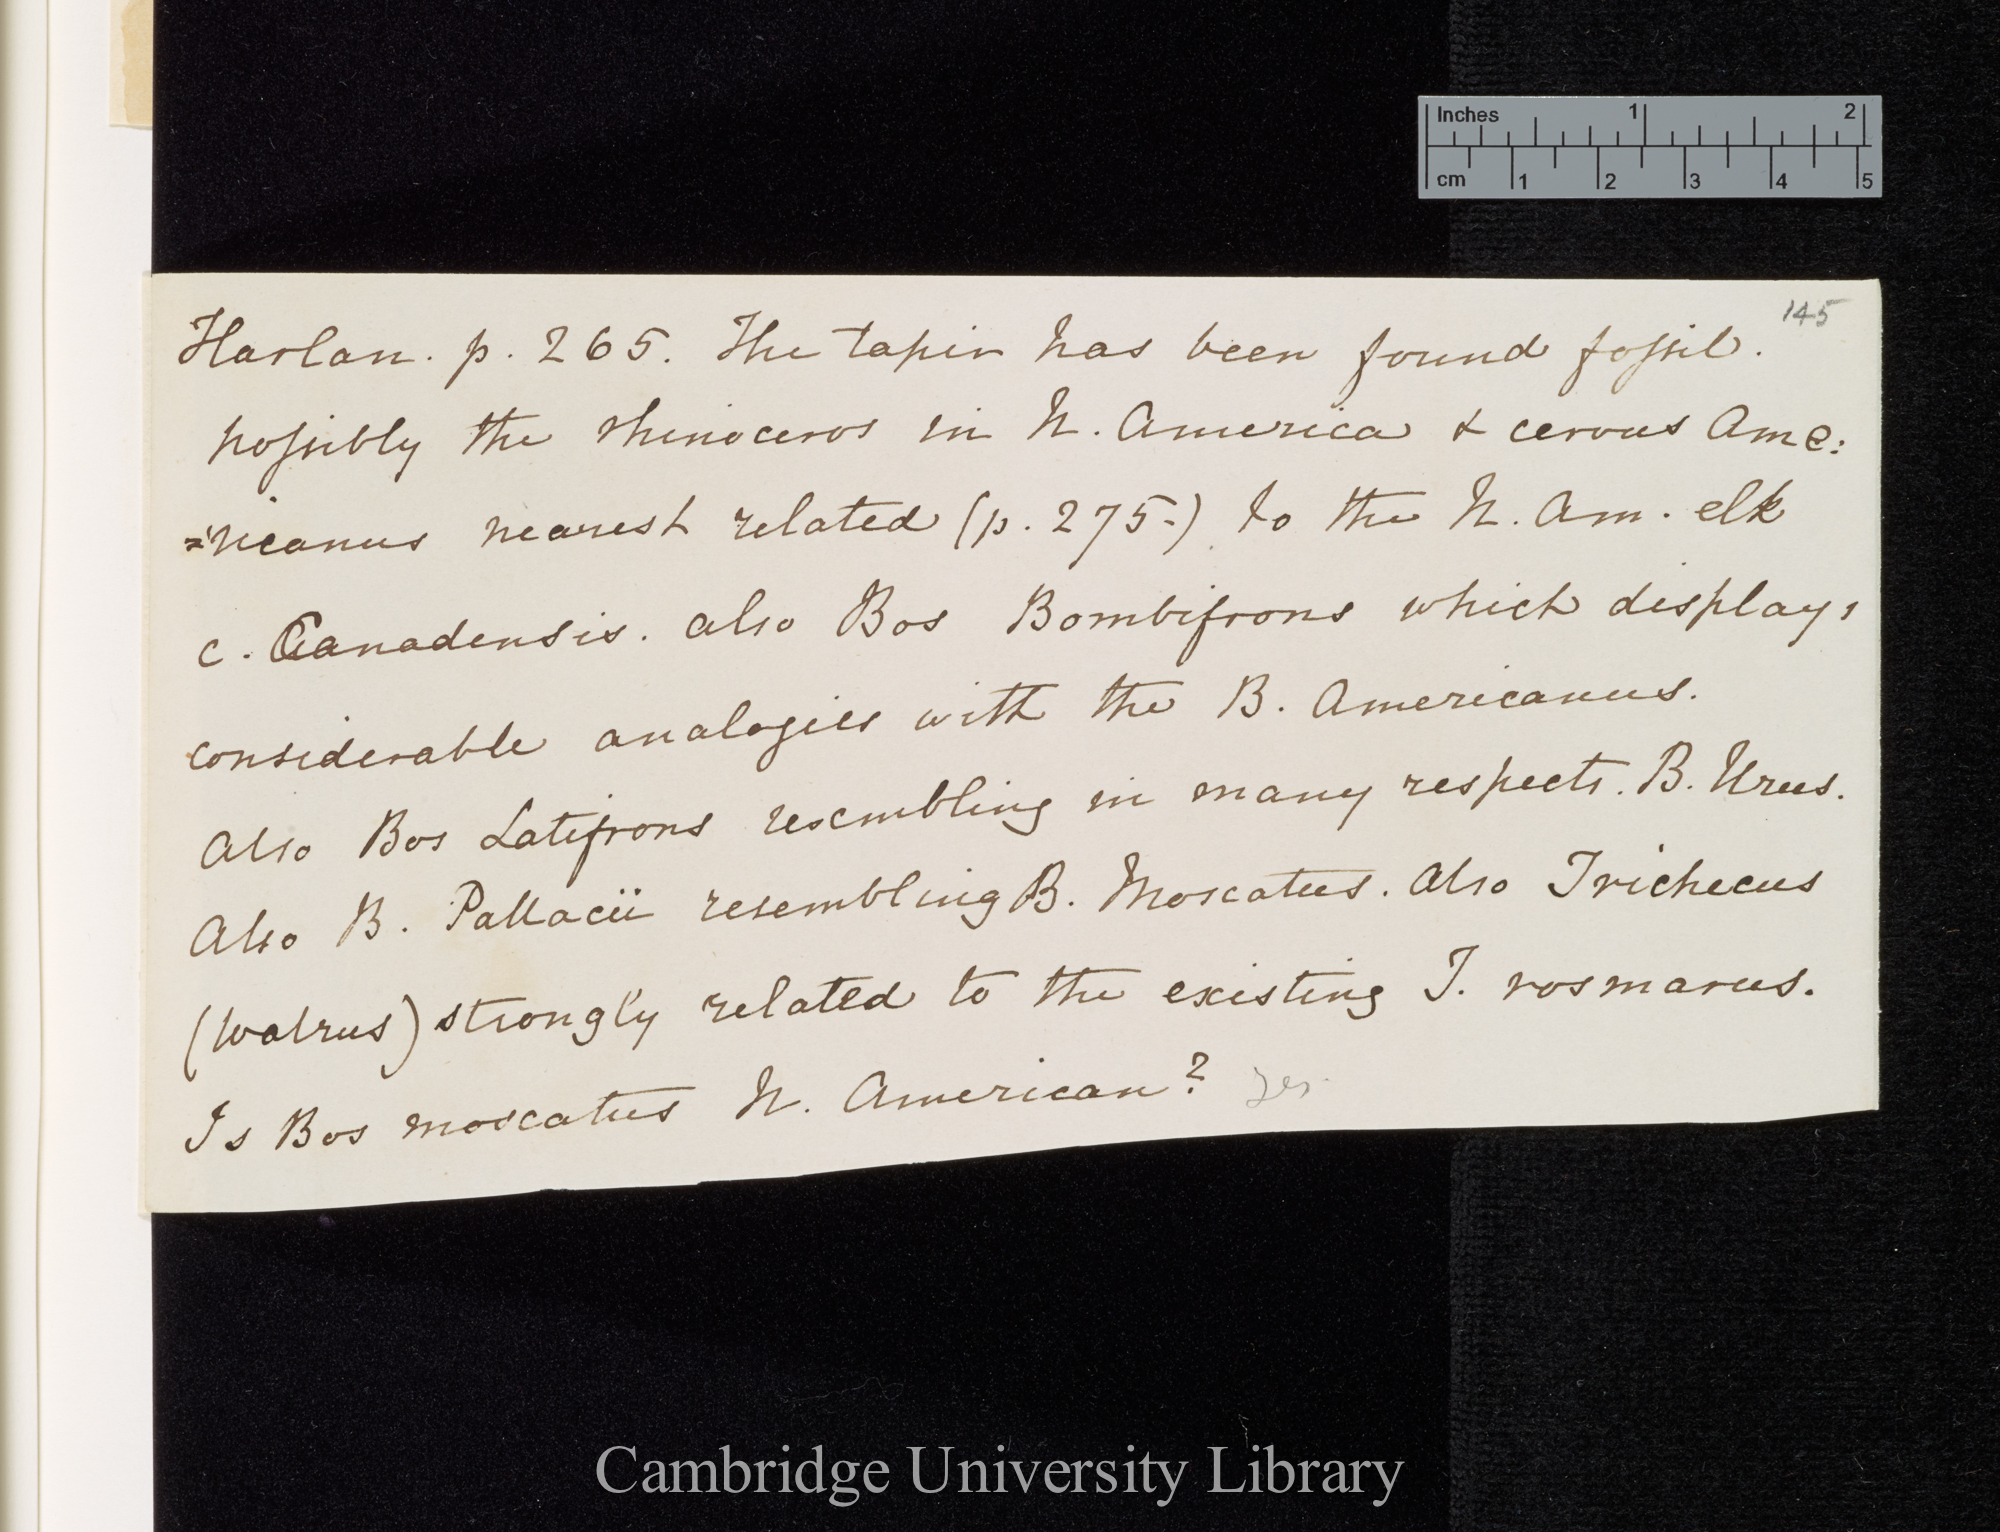 Inches 1 2
cm 1 2 3 4 5
145
Harlan. p. 265. The tapir has been found fossil.
possibly the rhinoceros in N. America & cervus Ame:
=ricanus nearest related (p. 275.) to the N. Am. elk
c. Canadensis. also Bos Bombifrons which displays
considerable analogies with the B. Americanus.
Also Bos Latifrons resembling in many respects. B. Urus.
Also B. Pallacii resembling B. Moscatus. Also Trichecus
(walrus) strongly related to the existing T. rosmarus.
Is Bos moscatus N. American? yes
Cambridge University Library